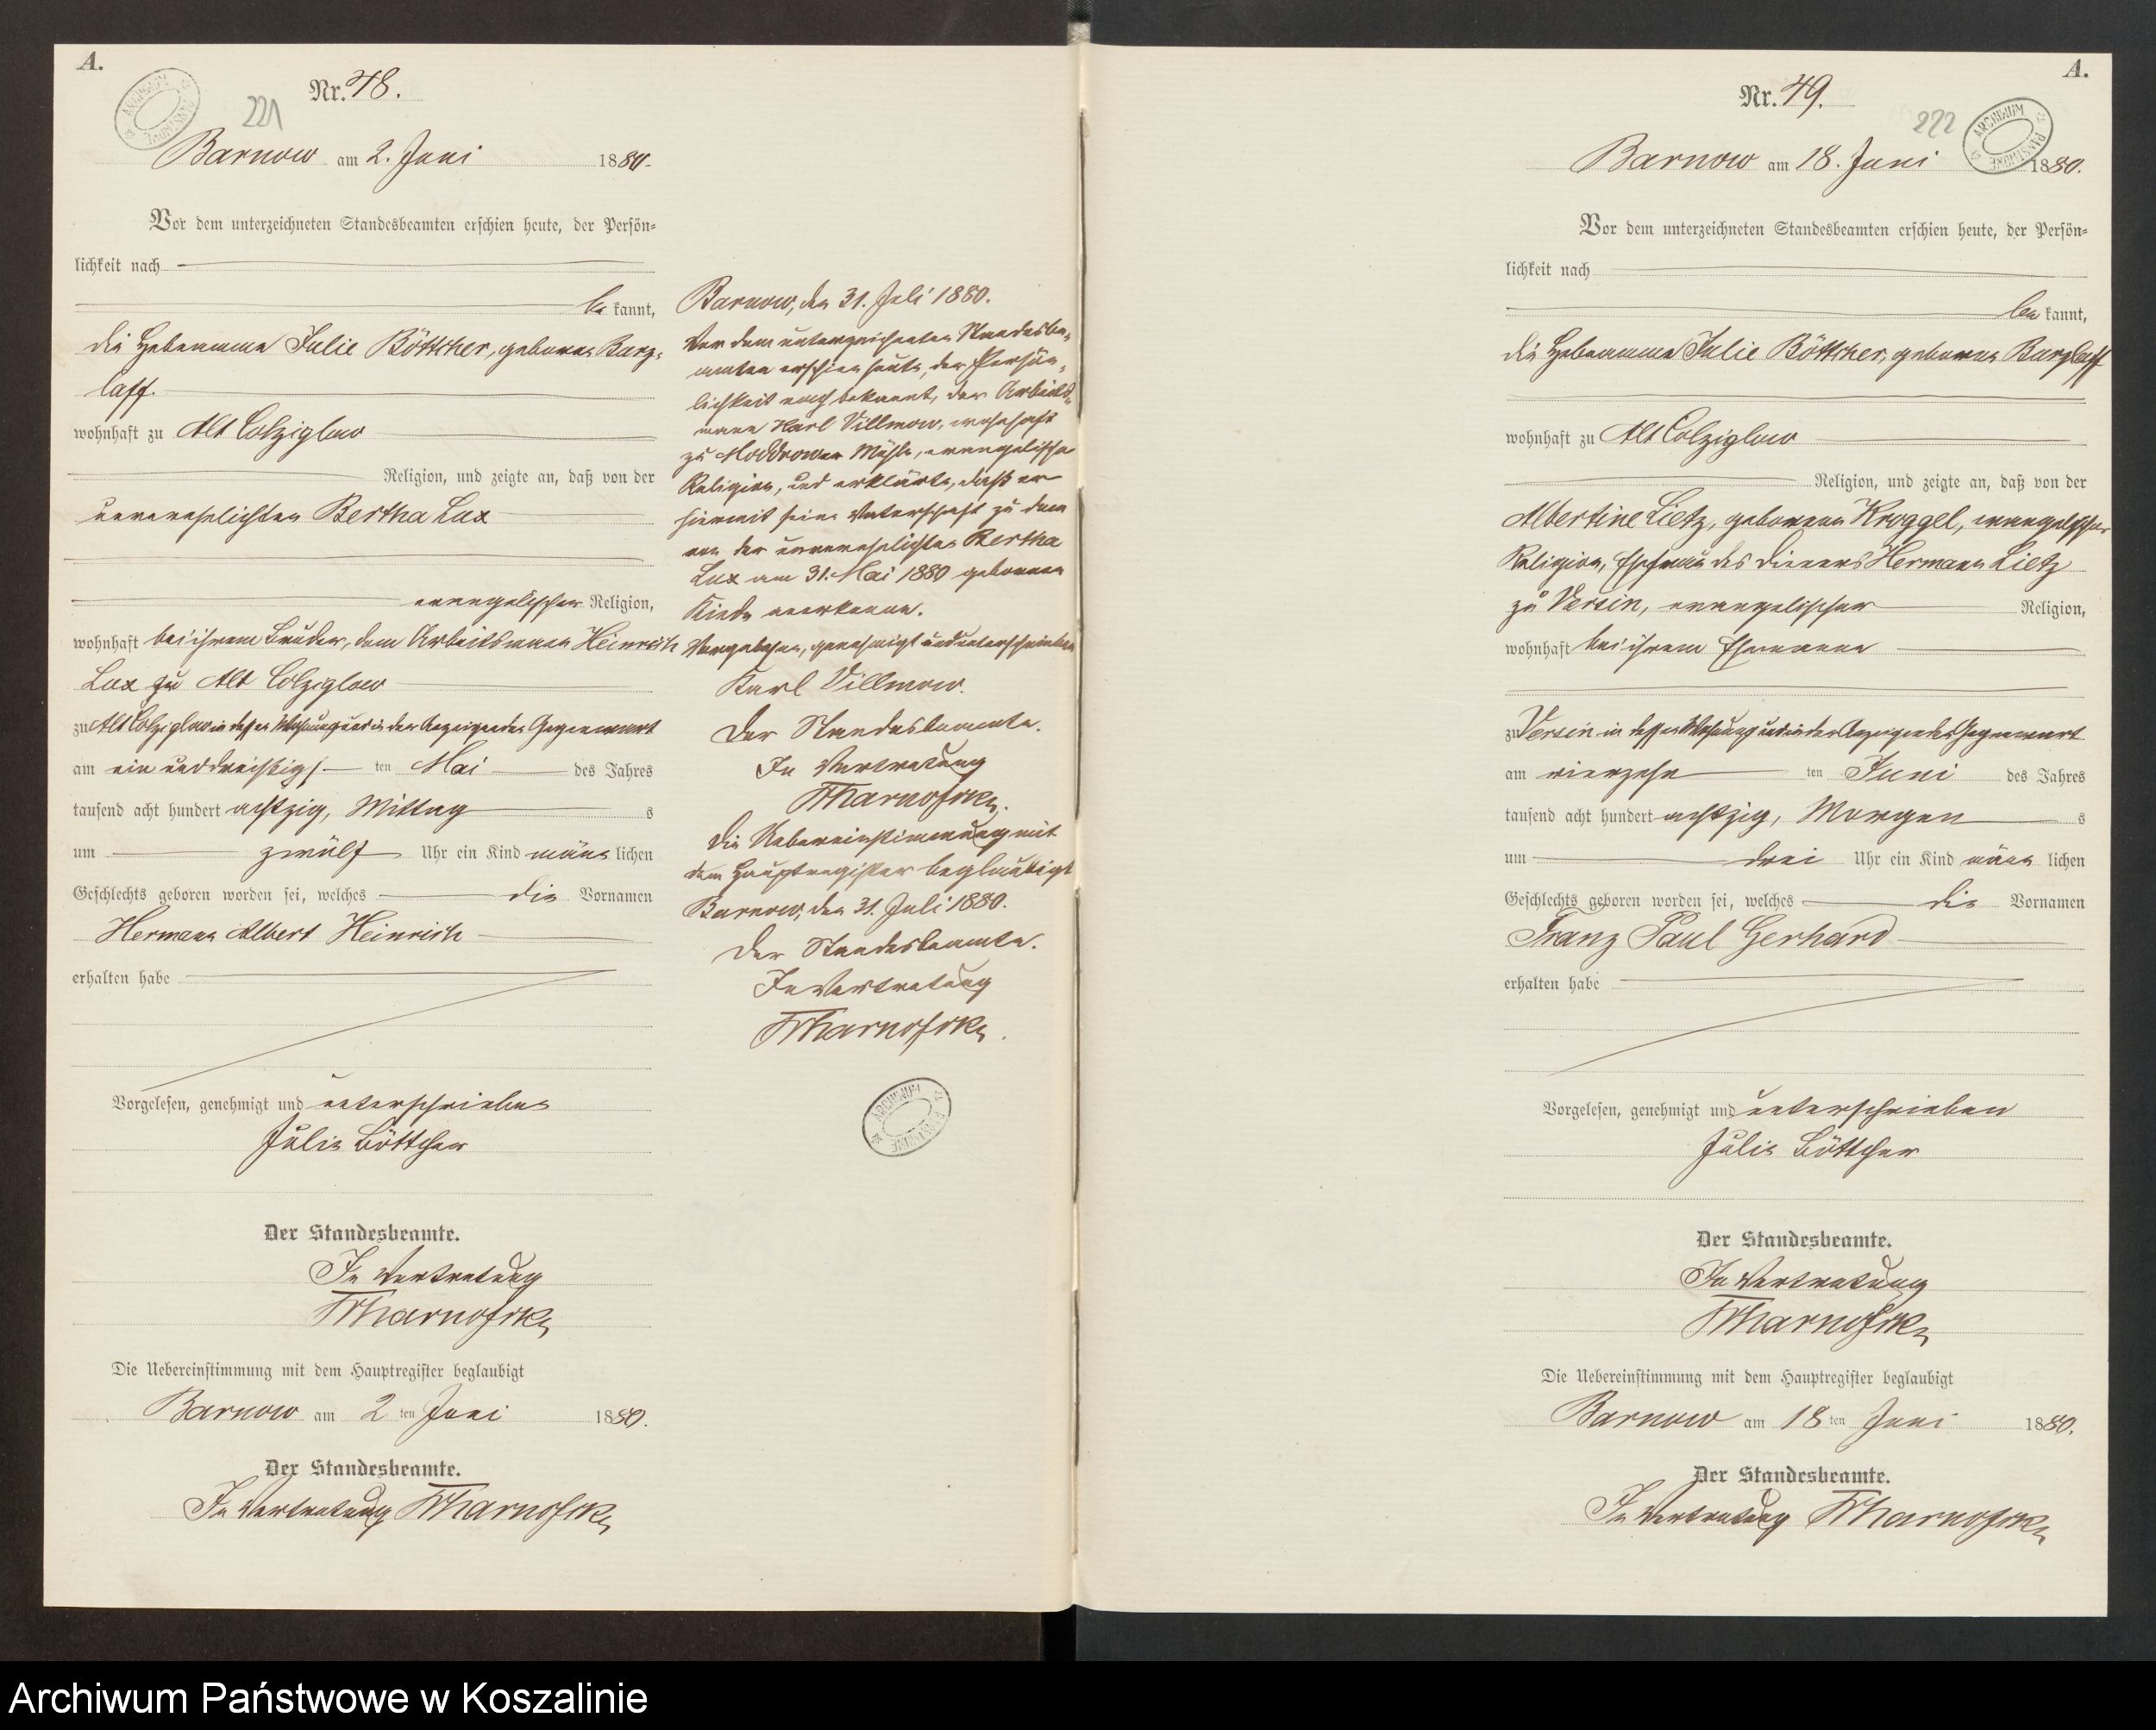 A.
Nr. 48.
221
Barnow am 2. Juni 1880.
Vor dem unterzeichneten Standesbeamten erschien heute, der Persön-
lichkeit nach
be kannt,
die Hebeamme Julie Böttcher, geborne Barz-
laff.
wohnhaft zu Alt Colziglow
Religion, und zeigte an, daß von der
unverehelichten Bertha Lux
evangelischer Religion,
wohnhaft bei ihrem Bruder, dem Arbeitsmann Heinrich
Lux zu Alt Colziglow
zu Alt Colziglow in dessen Wohnung und in der Anzeigenden Gegenwart
am ein und dreißigs ten Mai des Jahres
tausend acht hundert achtzig, Mittag s
um zwölf Uhr ein Kind männ lichen
Geschlechts geboren worden sei, welches die Vornamen
Hermann Albert Heinrich
erhalten habe
Vorgelesen, genehmigt und unterschrieben
Julie Böttcher
Der Standesbeamte.
In Vertretung
Die Uebereinstimmung mit dem Hauptregister beglaubigt
Barnow am 2 ten Juni 1880.
Der Standesbeamte.
In Vertretung
Barnow, den 31. Juli 1880.
Vor dem unterzeichneten Standesbe-
amten erschien heute, der Persön-
lichkeit nach bekannt, der Arbeits-
mann Karl Villmow, wohnhaft
zu Moddrower Mühle, evangelischer
Religion, und erklärte, daß er
hiermit seine Vaterschaft zu dem
von der unverehelichten Bertha
Lux am 31. Mai 1880 geborenen
Kinde anerkenne.
Vorgelesen, genehmigt und unterschrieben
Karl Villmow.
Der Standesbeamte.
In Vertretung
Die Uebereinstimmung mit
dem Hauptregister beglaubigt
Barnow, den 31. Juli 1880.
Der Standesbeamte.
In Vertretung
ARCHIWUM PAŃSTWOWE
A.
Nr. 49.
222
ARCHIWUM PAŃSTWOWE
Barnow am 18. Juni 1880.
Vor dem unterzeichneten Standesbeamten erschien heute, der Persön-
lichkeit nach
be kannt,
die Hebeamme Julie Böttcher, geborne Barzlaff
wohnhaft zu Alt Colziglow
Religion, und zeigte an, daß von der
Albertine Lietz, geborenen Kroggel, evangelischer
Religion, Ehefrau des Dieners Hermann Lietz
zu Versin, evangelischer Religion,
wohnhaft bei ihrem Ehemanne
zu Versin in dessen Wohnung und in der Anzeigenden Gegenwart
am vierzehn ten Juni des Jahres
tausend acht hundert achtzig, Morgen s
um drei Uhr ein Kind männ lichen
Geschlechts geboren worden sei, welches die Vornamen
Franz Paul Gerhard
erhalten habe
Vorgelesen, genehmigt und unterschrieben
Julie Böttcher
Der Standesbeamte.
In Vertretung
Die Uebereinstimmung mit dem Hauptregister beglaubigt
Barnow am 18 ten Juni 1880.
Der Standesbeamte.
In Vertretung
Archiwum Państwowe w Koszalinie